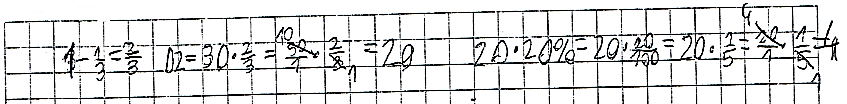 1-1/3=2/3 02=30·2/3=30/1·2/3=20 20·20%=20·20/100=20·1/5=20/1·1/5=4